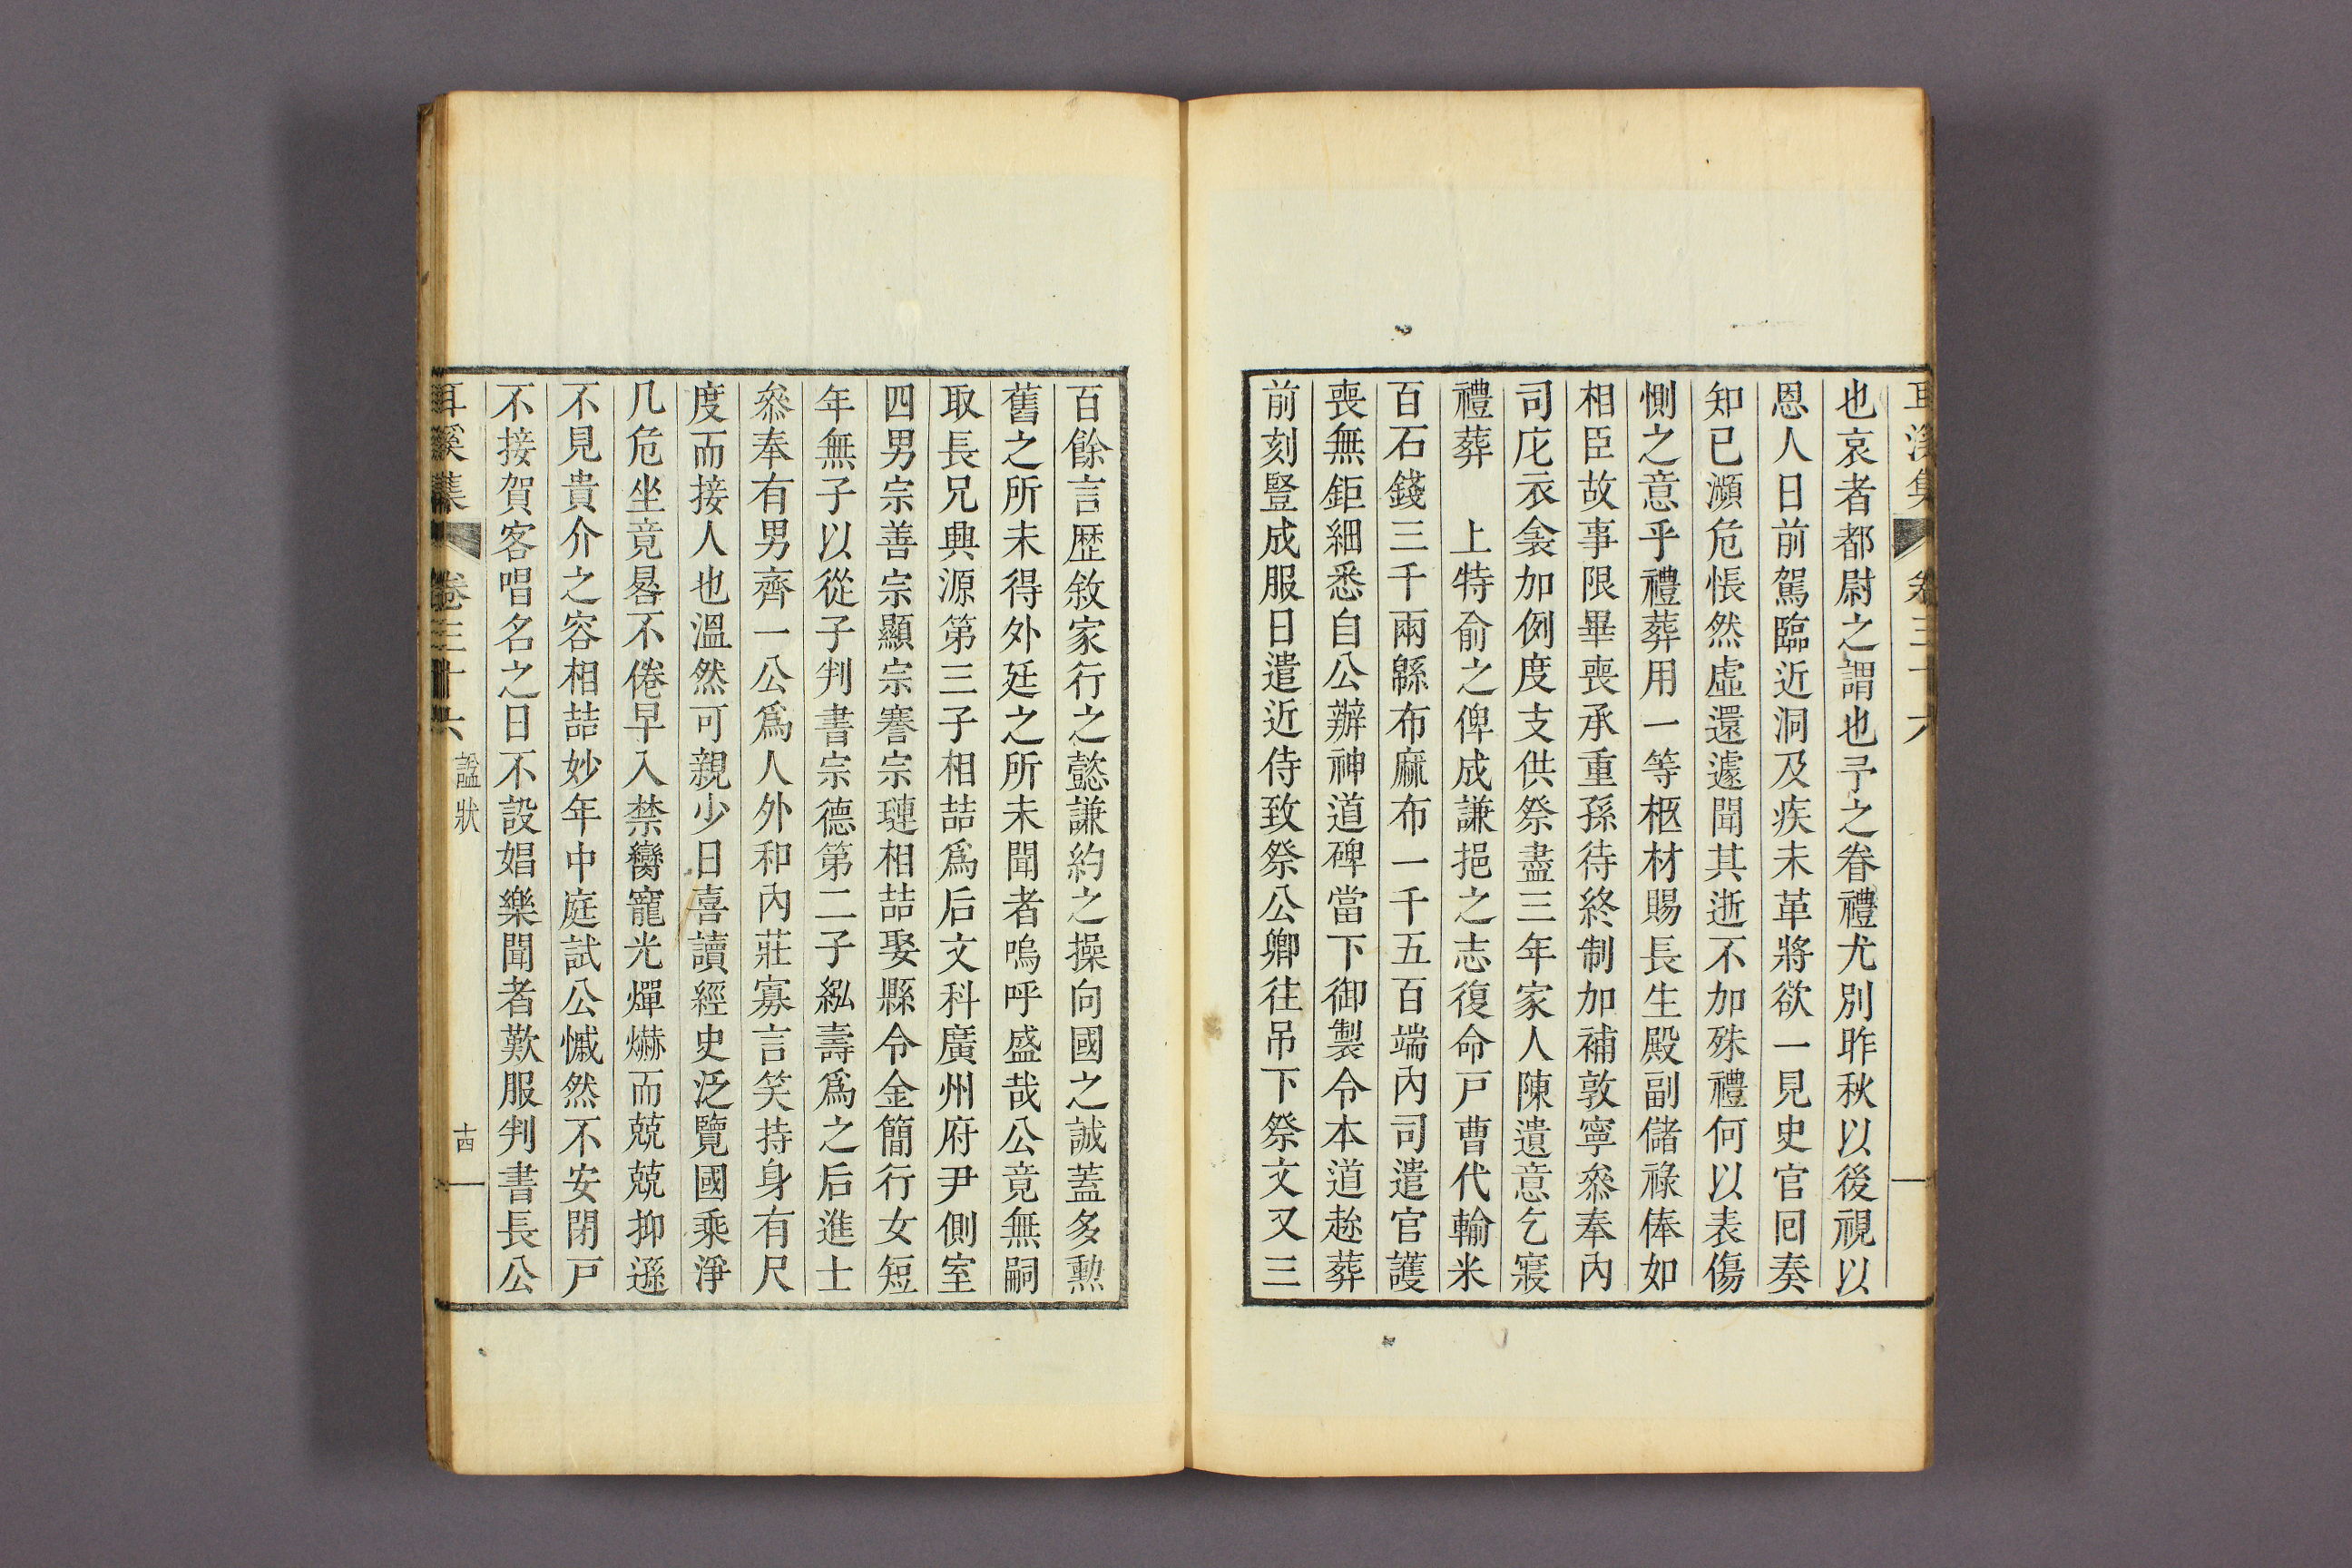 耳溪集 卷三十六
也哀者都尉之謂也予之眷禮尤別昨秋以後視以
恩人日前駕臨近洞及疾未革將欲一見史官回奏
知已瀕危悵然虛還遽聞其逝不加殊禮何以表傷
惻之意乎禮葬用一等柩材賜長生殿副儲祿俸如
相臣故事限畢喪承重孫待終制加補敦寧叅奉內
司庀衣衾加例度支供祭盡三年家人陳遺意乞寢
禮葬 上特俞之俾成謙挹之志復命戸曹代輸米
百石錢三千兩緜布麻布一千五百端內司遣官護
喪無鉅細悉自公辦神道碑當下御製令本道趂葬
前刻豎成服日遣近侍致祭公卿往吊下祭文又三
百餘言歷敘家行之懿謙約之操向國之誠蓋多勲
舊之所未得外廷之所未聞者嗚呼盛哉公竟無嗣
取長兄興源第三子相喆爲后文科廣州府尹側室
四男宗善宗顯宗謇宗璉相喆娶縣令金簡行女短
年無子以從子判書宗德第二子紭壽爲之后進士
叅奉有男齊一公爲人外和內莊寡言笑持身有尺
度而接人也溫然可親少日喜讀經史泛覽國乘淨
几危坐竟晷不倦早入禁臠寵光燀爀而兢兢抑遜
不見貴介之容相喆妙年中庭試公慽然不安閉戸
不接賀客唱名之日不設娼樂聞者歎服判書長公
耳溪集 卷三十六 諡狀 十四